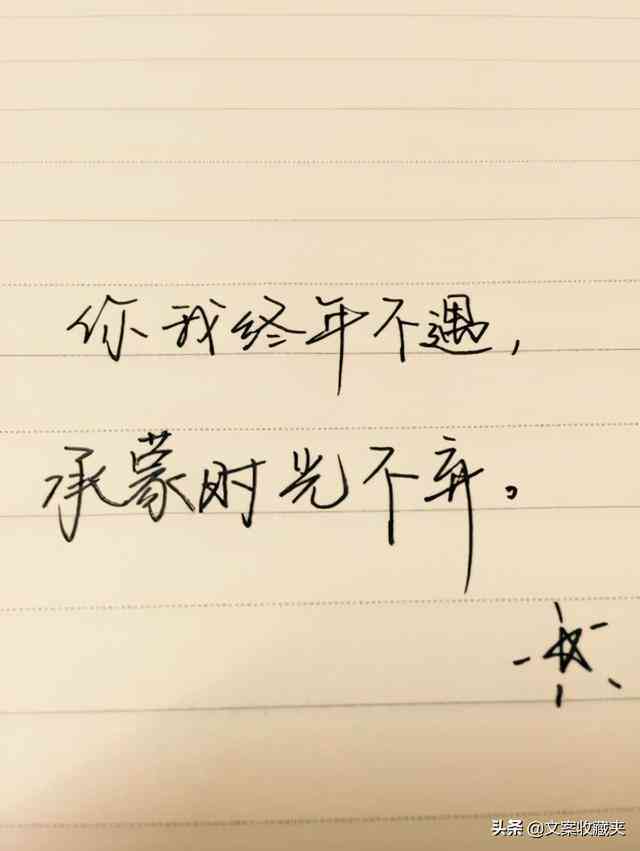 你我终年不遇,
承蒙时光不弃。
头条 @文案收藏夹